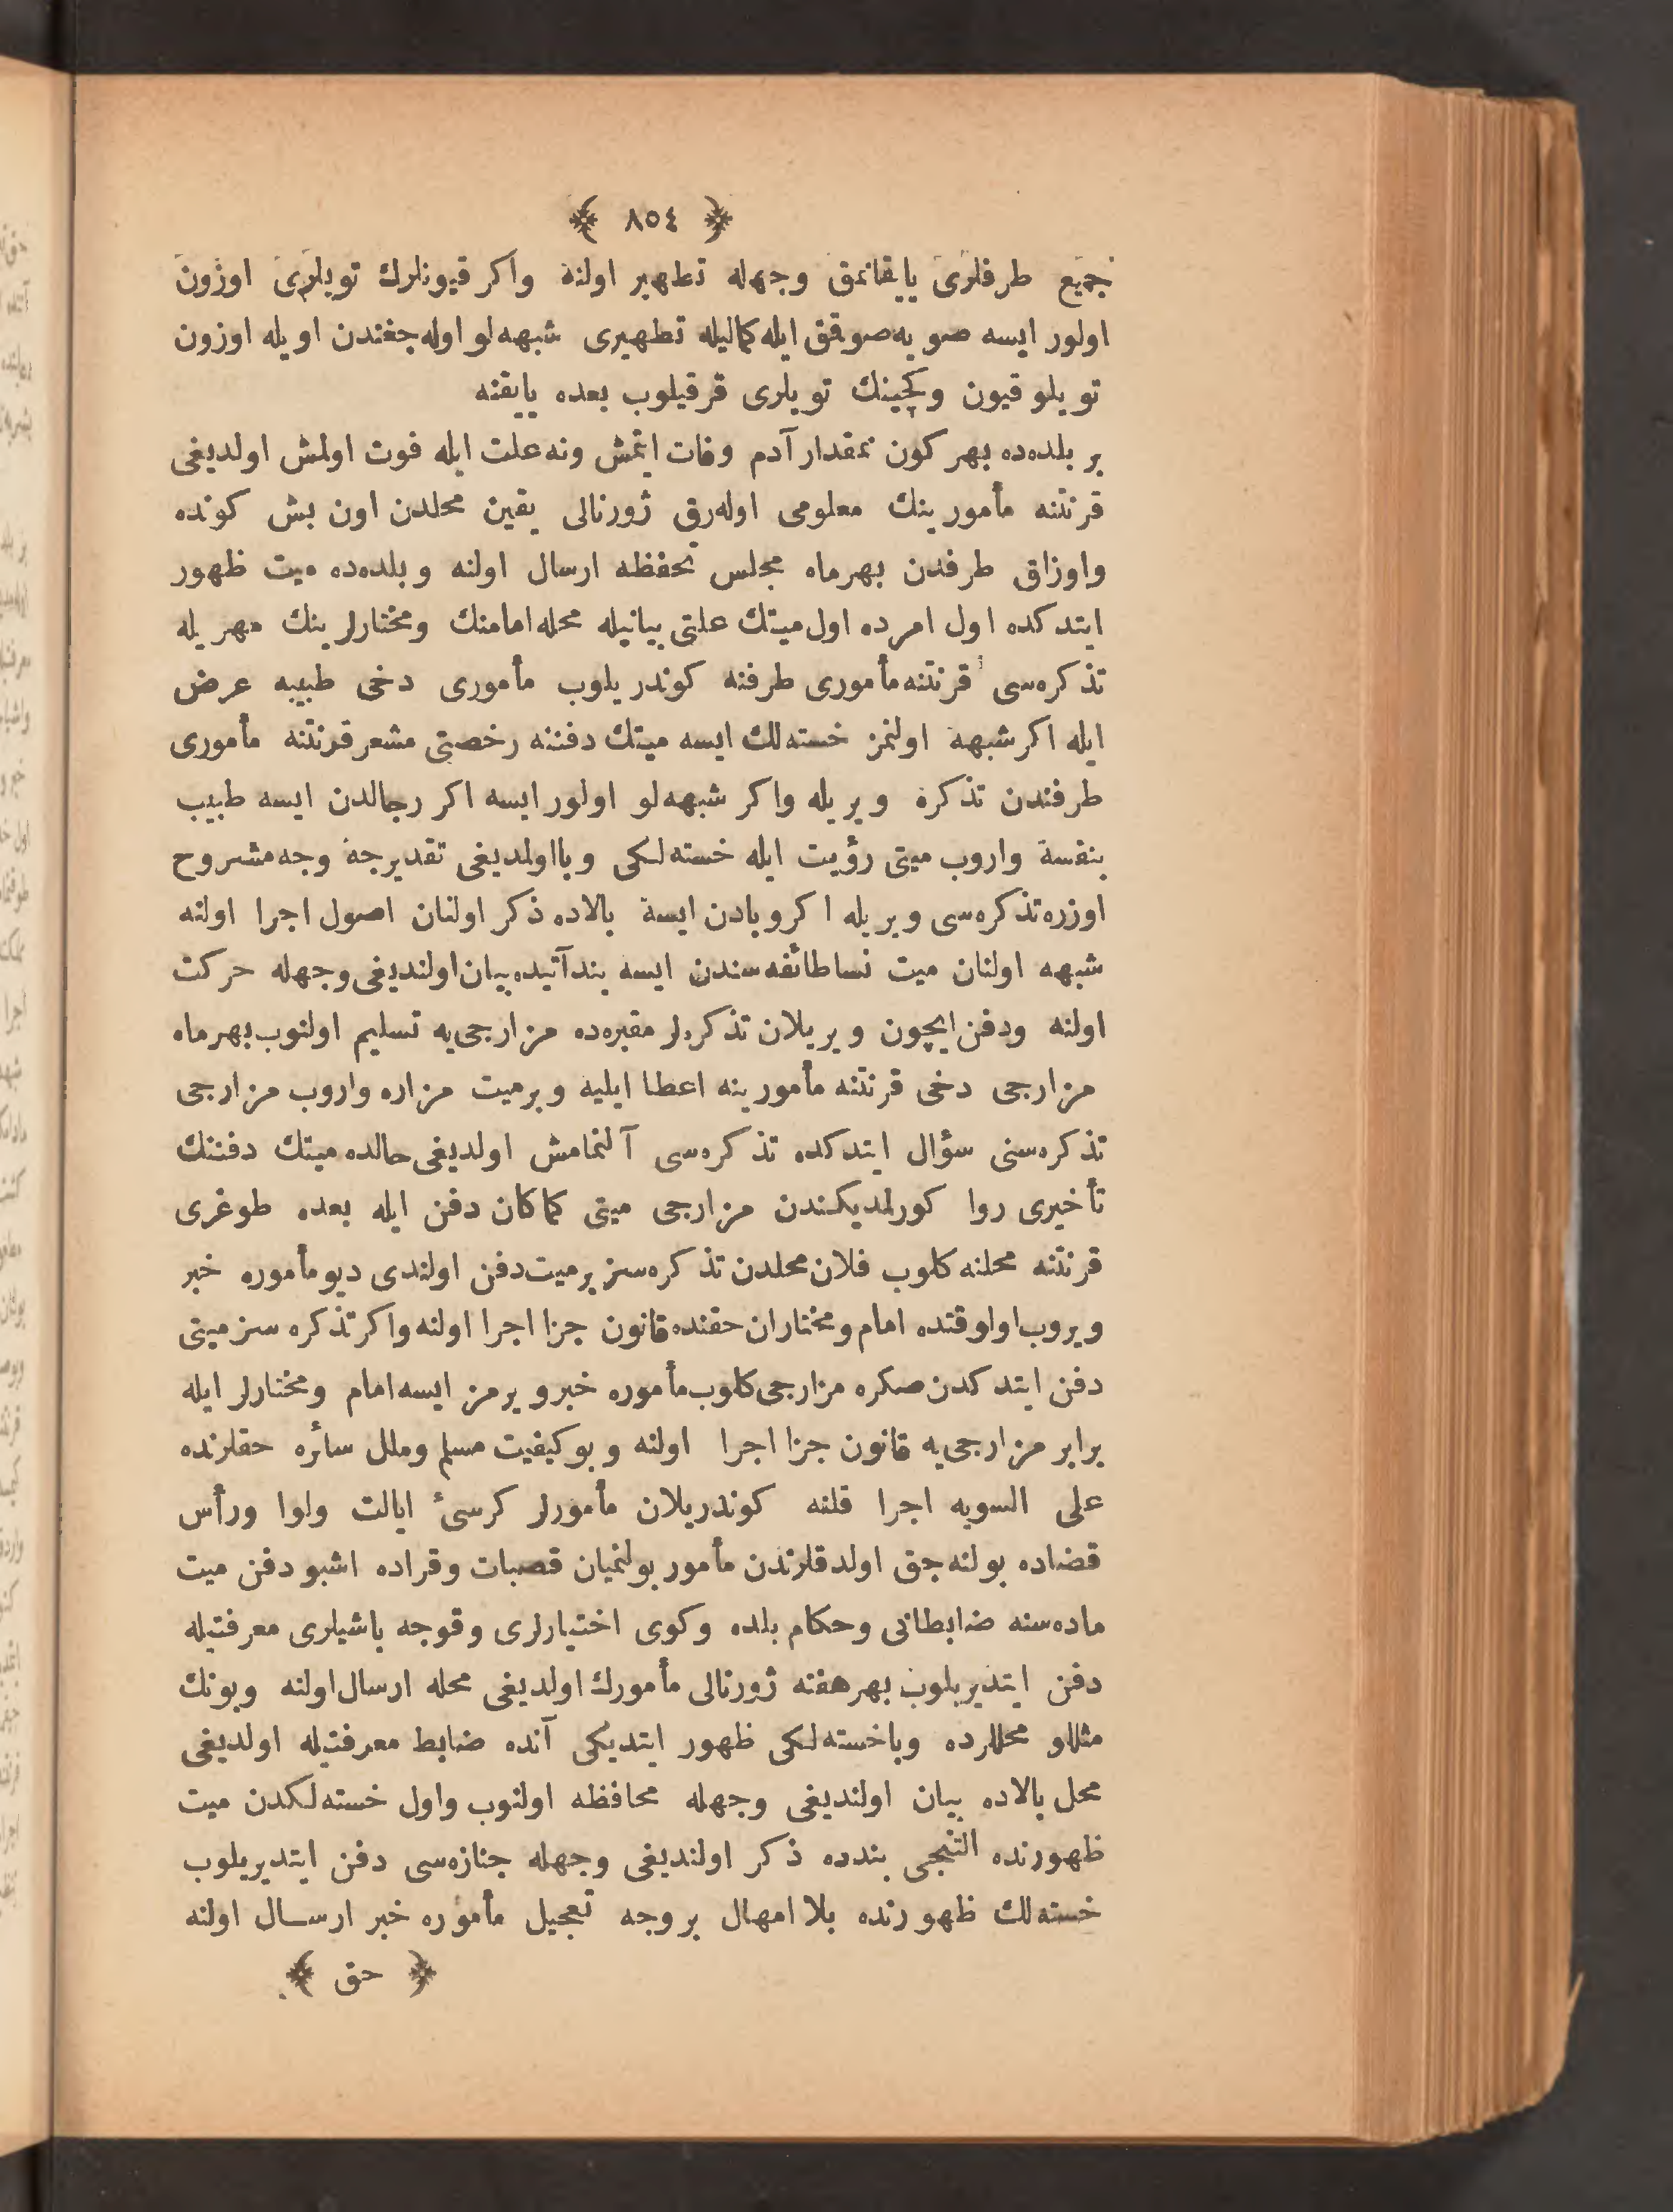 ﴿ ٨٥٤ ﴾
جميع طرفلرى يايقانمق وجهله تطهير اولنه واكر قيونلرك تويلرى اوزون
اولور ايسه صويه صوقمق ايله كماليله تطهيرى شبهه‌لو اوله‌جغندن اويله اوزون
تويلو قيون وكچينك تويلرى قرقيلوب بعده يايقنه
بر بلده‌ده بهر كون نمقدار آدم وفات ايتمش ونه علت ايله فوت اولمش اولديغى
قرنتنه مأمورينك معلومى اوله‌رق ژورنالى يقين محلدن اون بش كونده
واوزاق طرفدن بهرماه مجلس تحفظه ارسال اولنه وبلده‌ده ميت ظهور
ايتدكده اول امرده اول ميتك علتى بيانيله محله امامنك ومختارلرينك مهريله
تذكره‌سى قرنتنه مأمورى طرفنه كوندريلوب مأمورى دخى طبيبه عرض
ايله اكر شبهه اولنمز خسته‌لك ايسه ميتك دفننه رخصتى مشعر قرنتنه مأمورى
طرفندن تذكره ويريله واكر شبهه‌لو اولور ايسه اكر رجالدن ايسه طبيب
بنفسه واروب ميتى رؤيت ايله خسته‌لكى وبا اولمديغى تقديرجه وجه مشروح
اوزره تذكره‌سى ويريله اكر وبادن ايسه بالاده ذكر اولنان اصول اجرا اولنه
شبهه اولنان ميت نسا طائفه‌سندن ايسه بند آتيده بيان اولنديغى وجهله حركت
اولنه ودفن ايچون ويريلان تذكره‌لر مقبره‌ده مزارجى‌يه تسليم اولنوب بهرماه
مزارجى دخى قرنتنه مأمورينه اعطا ايليه وبر ميت مزاره واروب مزارجى
تذكره‌سنى سؤال ايتدكده تذكره‌سى آلنمامش اولديغى حالده ميتك دفننك
تأخيرى روا كورلمديكندن مزارجى ميتى كماكان دفن ايله بعده طوغرى
قرنتنه محلنه كلوب فلان محلدن تذكره‌سز بر ميت دفن اولندى ديو مأموره خبر
ويروب اول‌وقتده امام ومختاران حقنده قانون جزا اجرا اولنه واكر تذكره سز ميتى
دفن ايتدكدن صكره مزارجى كلوب مأموره خبر ويرمز ايسه امام ومختارلر ايله
برابر مزارجى‌يه قانون جزا اجرا اولنه وبو كيفيت مسلم وملل سائره حقلرنده
على السويه اجرا قلنه كوندريلان مأمورلر كرسئ ايالت ولوا ورأس
قضاده بولنه‌جق اولدقلرندن مأمور بولنميان قصبات وقراده اشبو دفن ميت
ماده‌سنه ضابطانى وحكام بلده وكوى اختيارلرى وقوجه باشيلرى معرفتيله
دفن ايتديريلوب بهر هفته ژورنالى مأمورك اولديغى محله ارسال اولنه وبونك
مثللو محللرده وبا خسته‌لكى ظهور ايتديكى آنده ضابط معرفتيله اولديغى
محل بالاده بيان اولنديغى وجهله محافظه اولنوب واول خسته‌لكدن ميت
ظهورنده التنجى بندده ذكر اولنديغى وجهله جنازه‌سى دفن ايتديريلوب
خسته‌لك ظهورنده بلا امهال بر وجه تعجيل مأموره خبر ارسال اولنه
﴿ حق ﴾